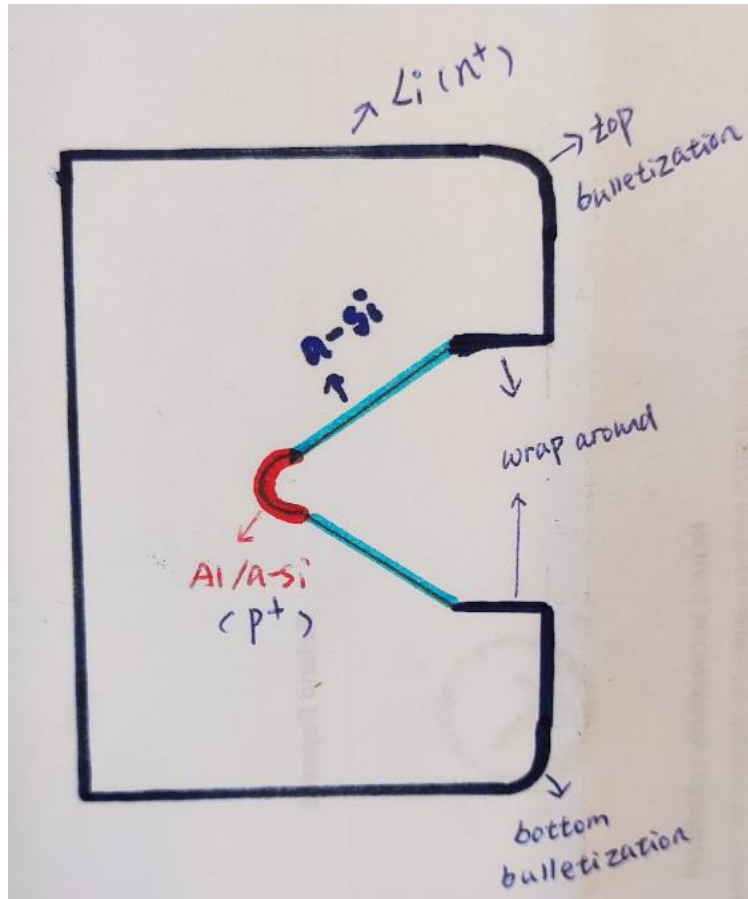 Li (n+)
top
bulletization
a-Si
wrap around
Al/a-si
(p+)
bottom
bulletization